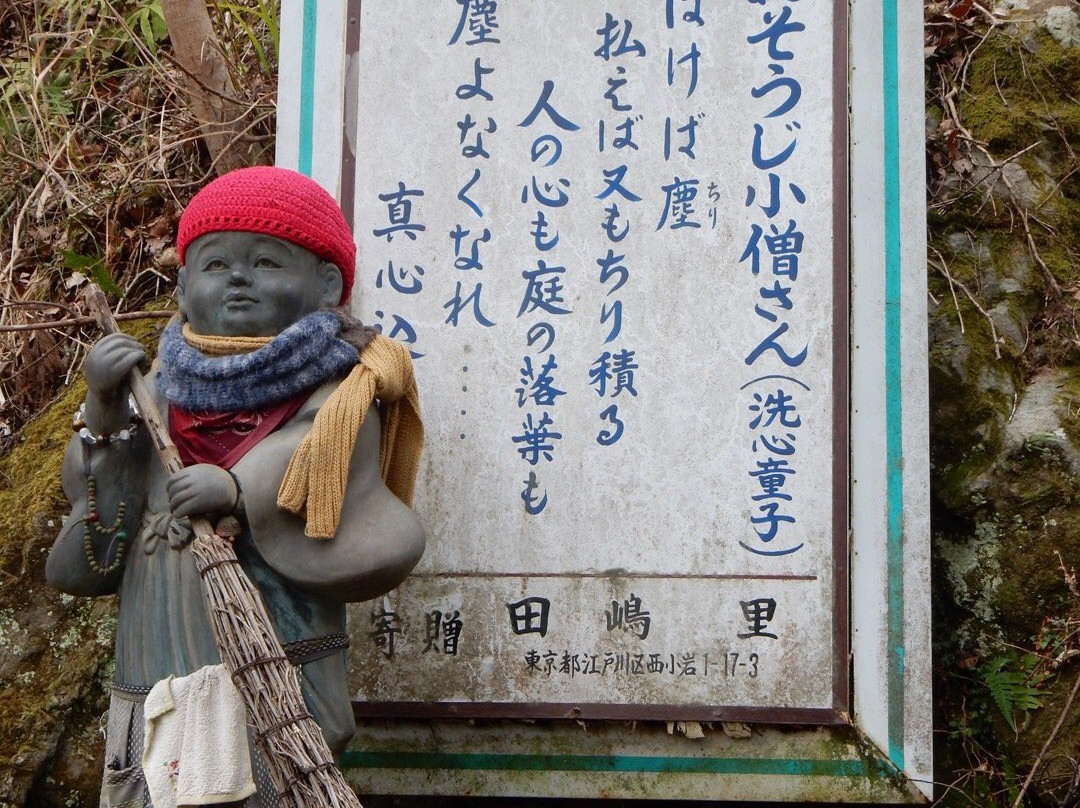 おそうじ小僧さん(洗心童子)
はけば塵
ちり
払えば又もちり積る
人の心も庭の落葉も
塵よなくなれ
真心込・・・・・
寄贈 田嶋 里
東京都江戸川区西小岩1-17-3